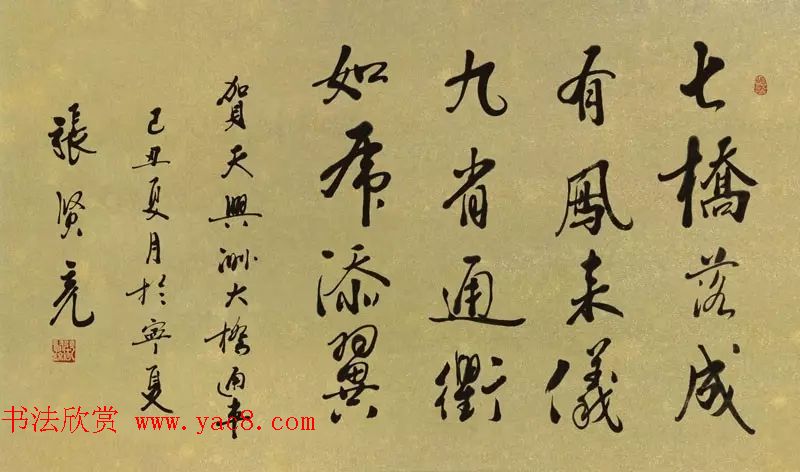 七橋落成
有鳳来儀
九省通衢
如虎添翼
賀天興洲大橋通車
己丑夏月於寧夏
張贤亮
书法欣赏 www.yac8.com